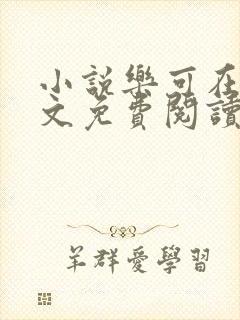 小說樂可在
文免費閱讀
羊群愛學習